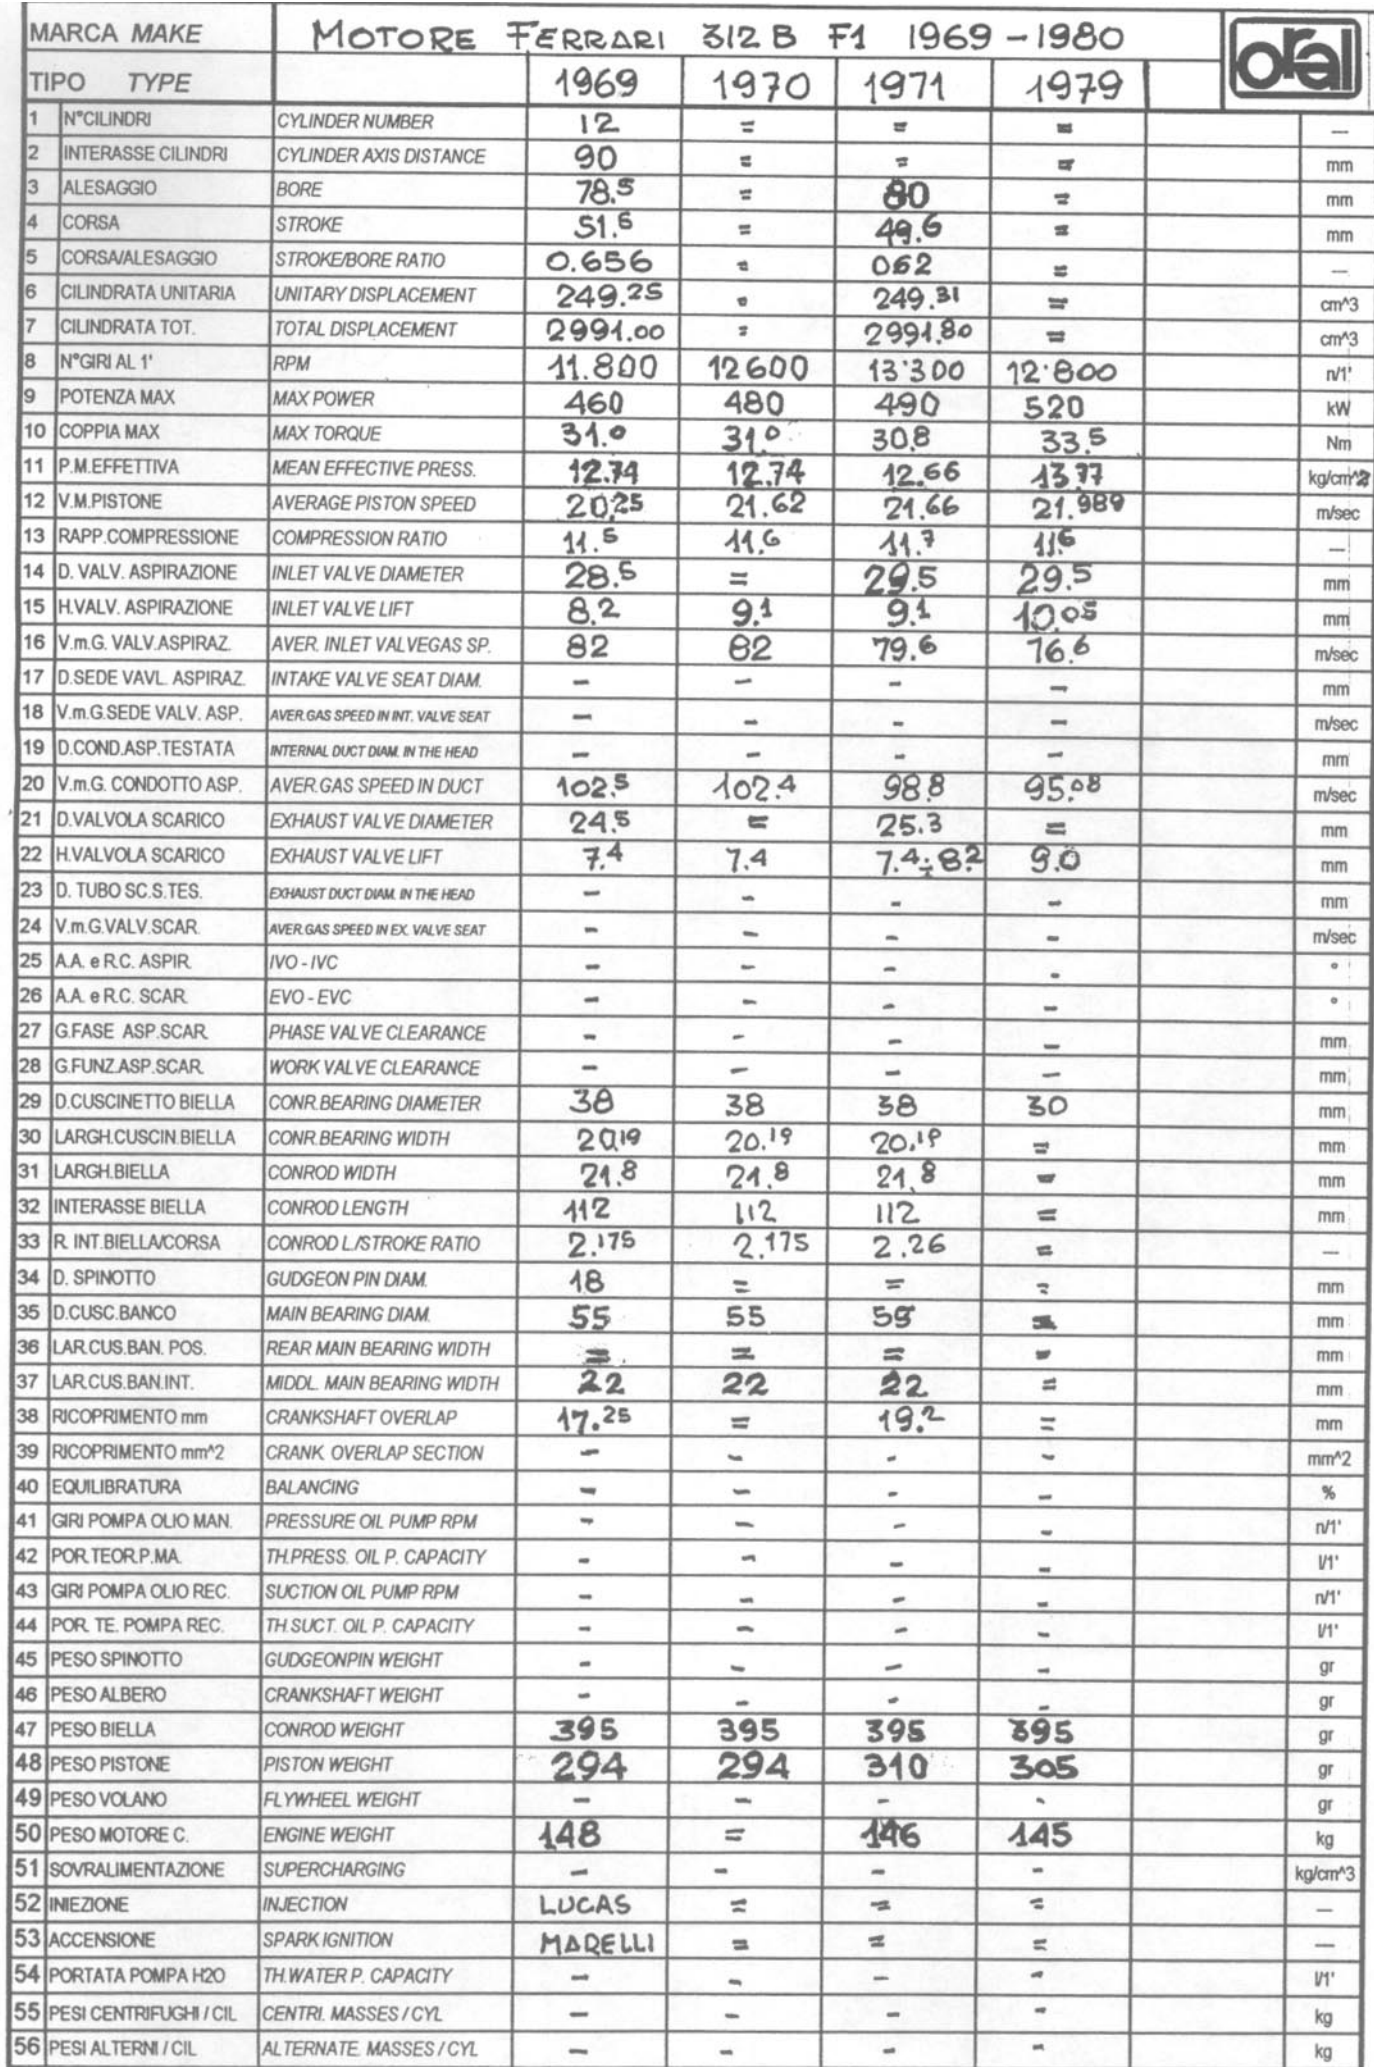 MARCA MAKE MOTORE FERRARI 312 B F1 1969-1980 oral
TIPO TYPE 1969 1970 1971 1979
1 N°CILINDRI CYLINDER NUMBER 12 = = = —
2 INTERASSE CILINDRI CYLINDER AXIS DISTANCE 90 = = = mm
3 ALESAGGIO BORE 78.5 = 80 = mm
4 CORSA STROKE 51.5 = 49.6 = mm
5 CORSA/ALESAGGIO STROKE/BORE RATIO 0.656 = 062 = —
6 CILINDRATA UNITARIA UNITARY DISPLACEMENT 249.25 = 249.31 = cm^3
7 CILINDRATA TOT. TOTAL DISPLACEMENT 2991.00 = 2991.80 = cm^3
8 N°GIRI AL 1' RPM 11.800 12600 13'300 12'800 n/1'
9 POTENZA MAX MAX POWER 460 480 490 520 kW
10 COPPIA MAX MAX TORQUE 31.0 31.0 30.8 33.5 Nm
11 P.M.EFFETTIVA MEAN EFFECTIVE PRESS. 12.74 12.74 12.66 13.77 kg/cm^2
12 V.M.PISTONE AVERAGE PISTON SPEED 20.25 21.62 21.66 21.989 m/sec
13 RAPP.COMPRESSIONE COMPRESSION RATIO 11.5 11.6 11.7 11.5 —
14 D. VALV. ASPIRAZIONE INLET VALVE DIAMETER 28.5 = 29.5 29.5 mm
15 H.VALV. ASPIRAZIONE INLET VALVE LIFT 8.2 9.1 9.1 10.05 mm
16 V.m.G. VALV.ASPIRAZ. AVER. INLET VALVEGAS SP. 82 82 79.6 76.6 m/sec
17 D.SEDE VAVL. ASPIRAZ. INTAKE VALVE SEAT DIAM. - - - - mm
18 V.m.G.SEDE VALV. ASP. AVER.GAS SPEED IN INT. VALVE SEAT - - - - m/sec
19 D.COND.ASP.TESTATA INTERNAL DUCT DIAM. IN THE HEAD - - - - mm
20 V.m.G. CONDOTTO ASP. AVER.GAS SPEED IN DUCT 102.5 102.4 98.8 95.08 m/sec
21 D.VALVOLA SCARICO EXHAUST VALVE DIAMETER 24.5 = 25.3 = mm
22 H.VALVOLA SCARICO EXHAUST VALVE LIFT 7.4 7.4 7.4÷8.2 9.0 mm
23 D. TUBO SC.S.TES. EXHAUST DUCT DIAM. IN THE HEAD - - - - mm
24 V.m.G.VALV.SCAR. AVER.GAS SPEED IN EX. VALVE SEAT - - - - m/sec
25 A.A. e R.C. ASPIR. IVO - IVC - - - - °
26 A.A. e R.C. SCAR. EVO - EVC - - - - °
27 G.FASE ASP.SCAR. PHASE VALVE CLEARANCE - - - - mm
28 G.FUNZ.ASP.SCAR. WORK VALVE CLEARANCE - - - - mm
29 D.CUSCINETTO BIELLA CONR.BEARING DIAMETER 38 38 38 30 mm
30 LARGH.CUSCIN.BIELLA CONR.BEARING WIDTH 20.19 20.19 20.19 = mm
31 LARGH.BIELLA CONROD WIDTH 21.8 21.8 21.8 = mm
32 INTERASSE BIELLA CONROD LENGTH 112 112 112 = mm
33 R. INT.BIELLA/CORSA CONROD L./STROKE RATIO 2.175 2.175 2.26 = —
34 D. SPINOTTO GUDGEON PIN DIAM. 18 = = = mm
35 D.CUSC.BANCO MAIN BEARING DIAM. 55 55 55 = mm
36 LAR.CUS.BAN. POS. REAR MAIN BEARING WIDTH = = = = mm
37 LAR.CUS.BAN.INT. MIDDL. MAIN BEARING WIDTH 22 22 22 = mm
38 RICOPRIMENTO mm CRANKSHAFT OVERLAP 17.25 = 19.2 = mm
39 RICOPRIMENTO mm^2 CRANK. OVERLAP SECTION - - - - mm^2
40 EQUILIBRATURA BALANCING - - - - %
41 GIRI POMPA OLIO MAN. PRESSURE OIL PUMP RPM - - - - n/1'
42 POR.TEOR.P.MA. TH.PRESS. OIL P. CAPACITY - - - - l/1'
43 GIRI POMPA OLIO REC. SUCTION OIL PUMP RPM - - - - n/1'
44 POR. TE. POMPA REC. TH.SUCT. OIL P. CAPACITY - - - - l/1'
45 PESO SPINOTTO GUDGEONPIN WEIGHT - - - - gr
46 PESO ALBERO CRANKSHAFT WEIGHT - - - - gr
47 PESO BIELLA CONROD WEIGHT 395 395 395 395 gr
48 PESO PISTONE PISTON WEIGHT 294 294 310 305 gr
49 PESO VOLANO FLYWHEEL WEIGHT - - - - gr
50 PESO MOTORE C. ENGINE WEIGHT 148 = 146 145 kg
51 SOVRALIMENTAZIONE SUPERCHARGING - - - - kg/cm^3
52 INIEZIONE INJECTION LUCAS = = = —
53 ACCENSIONE SPARK IGNITION MARELLI = = = —
54 PORTATA POMPA H2O TH.WATER P. CAPACITY - - - - l/1'
55 PESI CENTRIFUGHI / CIL CENTRI. MASSES / CYL - - - - kg
56 PESI ALTERNI / CIL ALTERNATE. MASSES / CYL - - - - kg